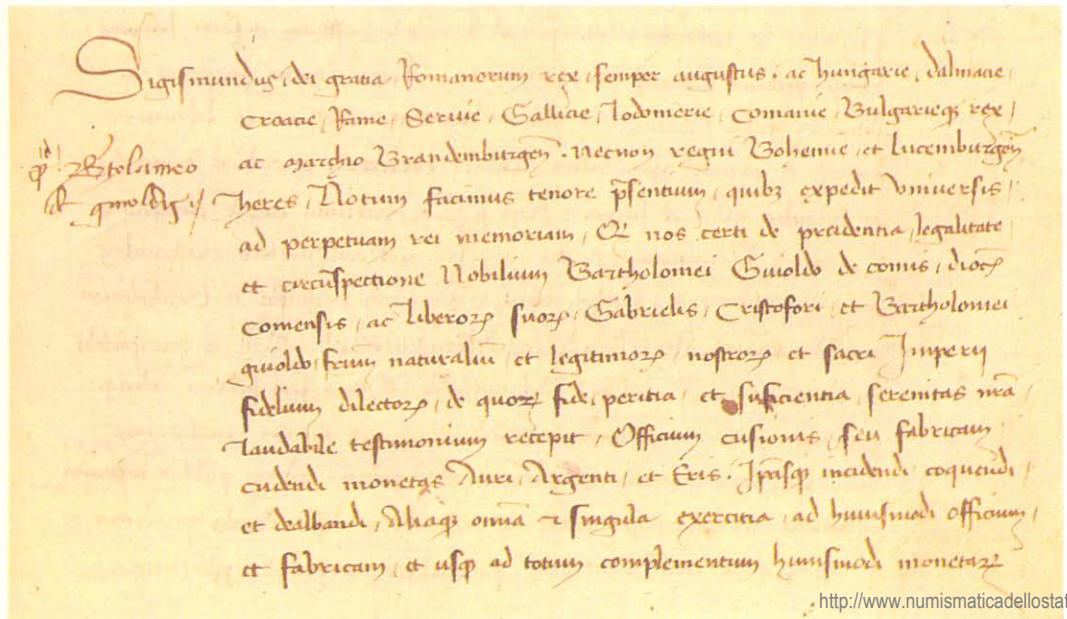 Sigismundus, dei gratia, Romanorum rex, semper augustus. ac Hungarie, dalmacie,
Croacie, Rame, Servie, Gallicie, lodomerie, Comanie, Bulgarieqȝ rex,
ac marchio Brandemburgeñ. Necnon regni Bohemie, et lucemburgeñ
heres, Notum facimus tenore p̄sentium, quibȝ expedit universis,
ad perpetuam rei memoriam, Qđ nos certi de providentia, legalitate
et circūspectione Nobilium Bartholomei Guioldo de comis, dioc̄
Comensis, ac liberoꝝ suoꝝ, Gabrielis, Cristofori, et Bartholomei
guioldo, fr̄um naturaliū, et legitimoꝝ, nostroꝝ et sacri Imperii
fidelium dilectoꝝ, de quoꝝ fide, peritia, et suficientia, serenitas nrā,
laudabile testimonium recepit, Officium cusionis, seu fabricam
cudendi monetas Auri, Argenti, et Eris. Ip̄asqȝ incidendi, coquendi,
et dealbandi, Aliaqȝ omīa et singula exercitia, ad huiusmodi officium,
et fabricam, et usqȝ ad totum complementum huiusmodi monetaꝝ
http://www.numismaticadellostat